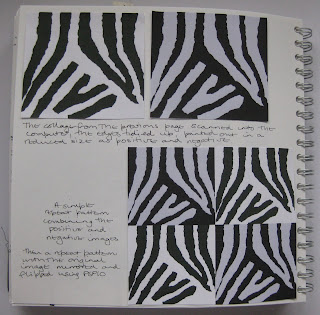 The collage from the previous page scanned into the
computer, the edges tidied up, printed out in a
reduced size as positive and negative
A simple
repeat pattern
combining the
positive and
negative images
Then a repeat pattern
with the original
image mirrored and
flipped using